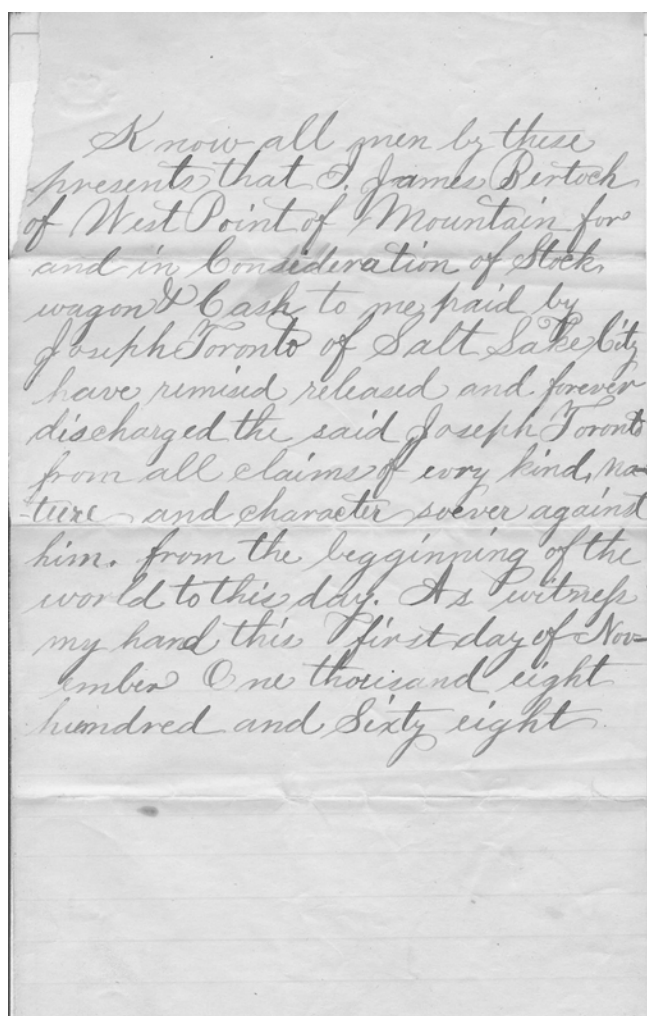 Know all men by these
presents that I. James Bertoch
of West Point of Mountain for
and in Consideration of Stock,
wagon & Cash to me paid by
Joseph Toronto of Salt Lake City
have remised released and forever
discharged the said Joseph Toronto
from all claims of evry kind, na-
-ture and character soever against
him. from the begginning of the
world to this day. As witness
my hand this first day of Nov-
ember One thousand eight
hundred and Sixty eight.